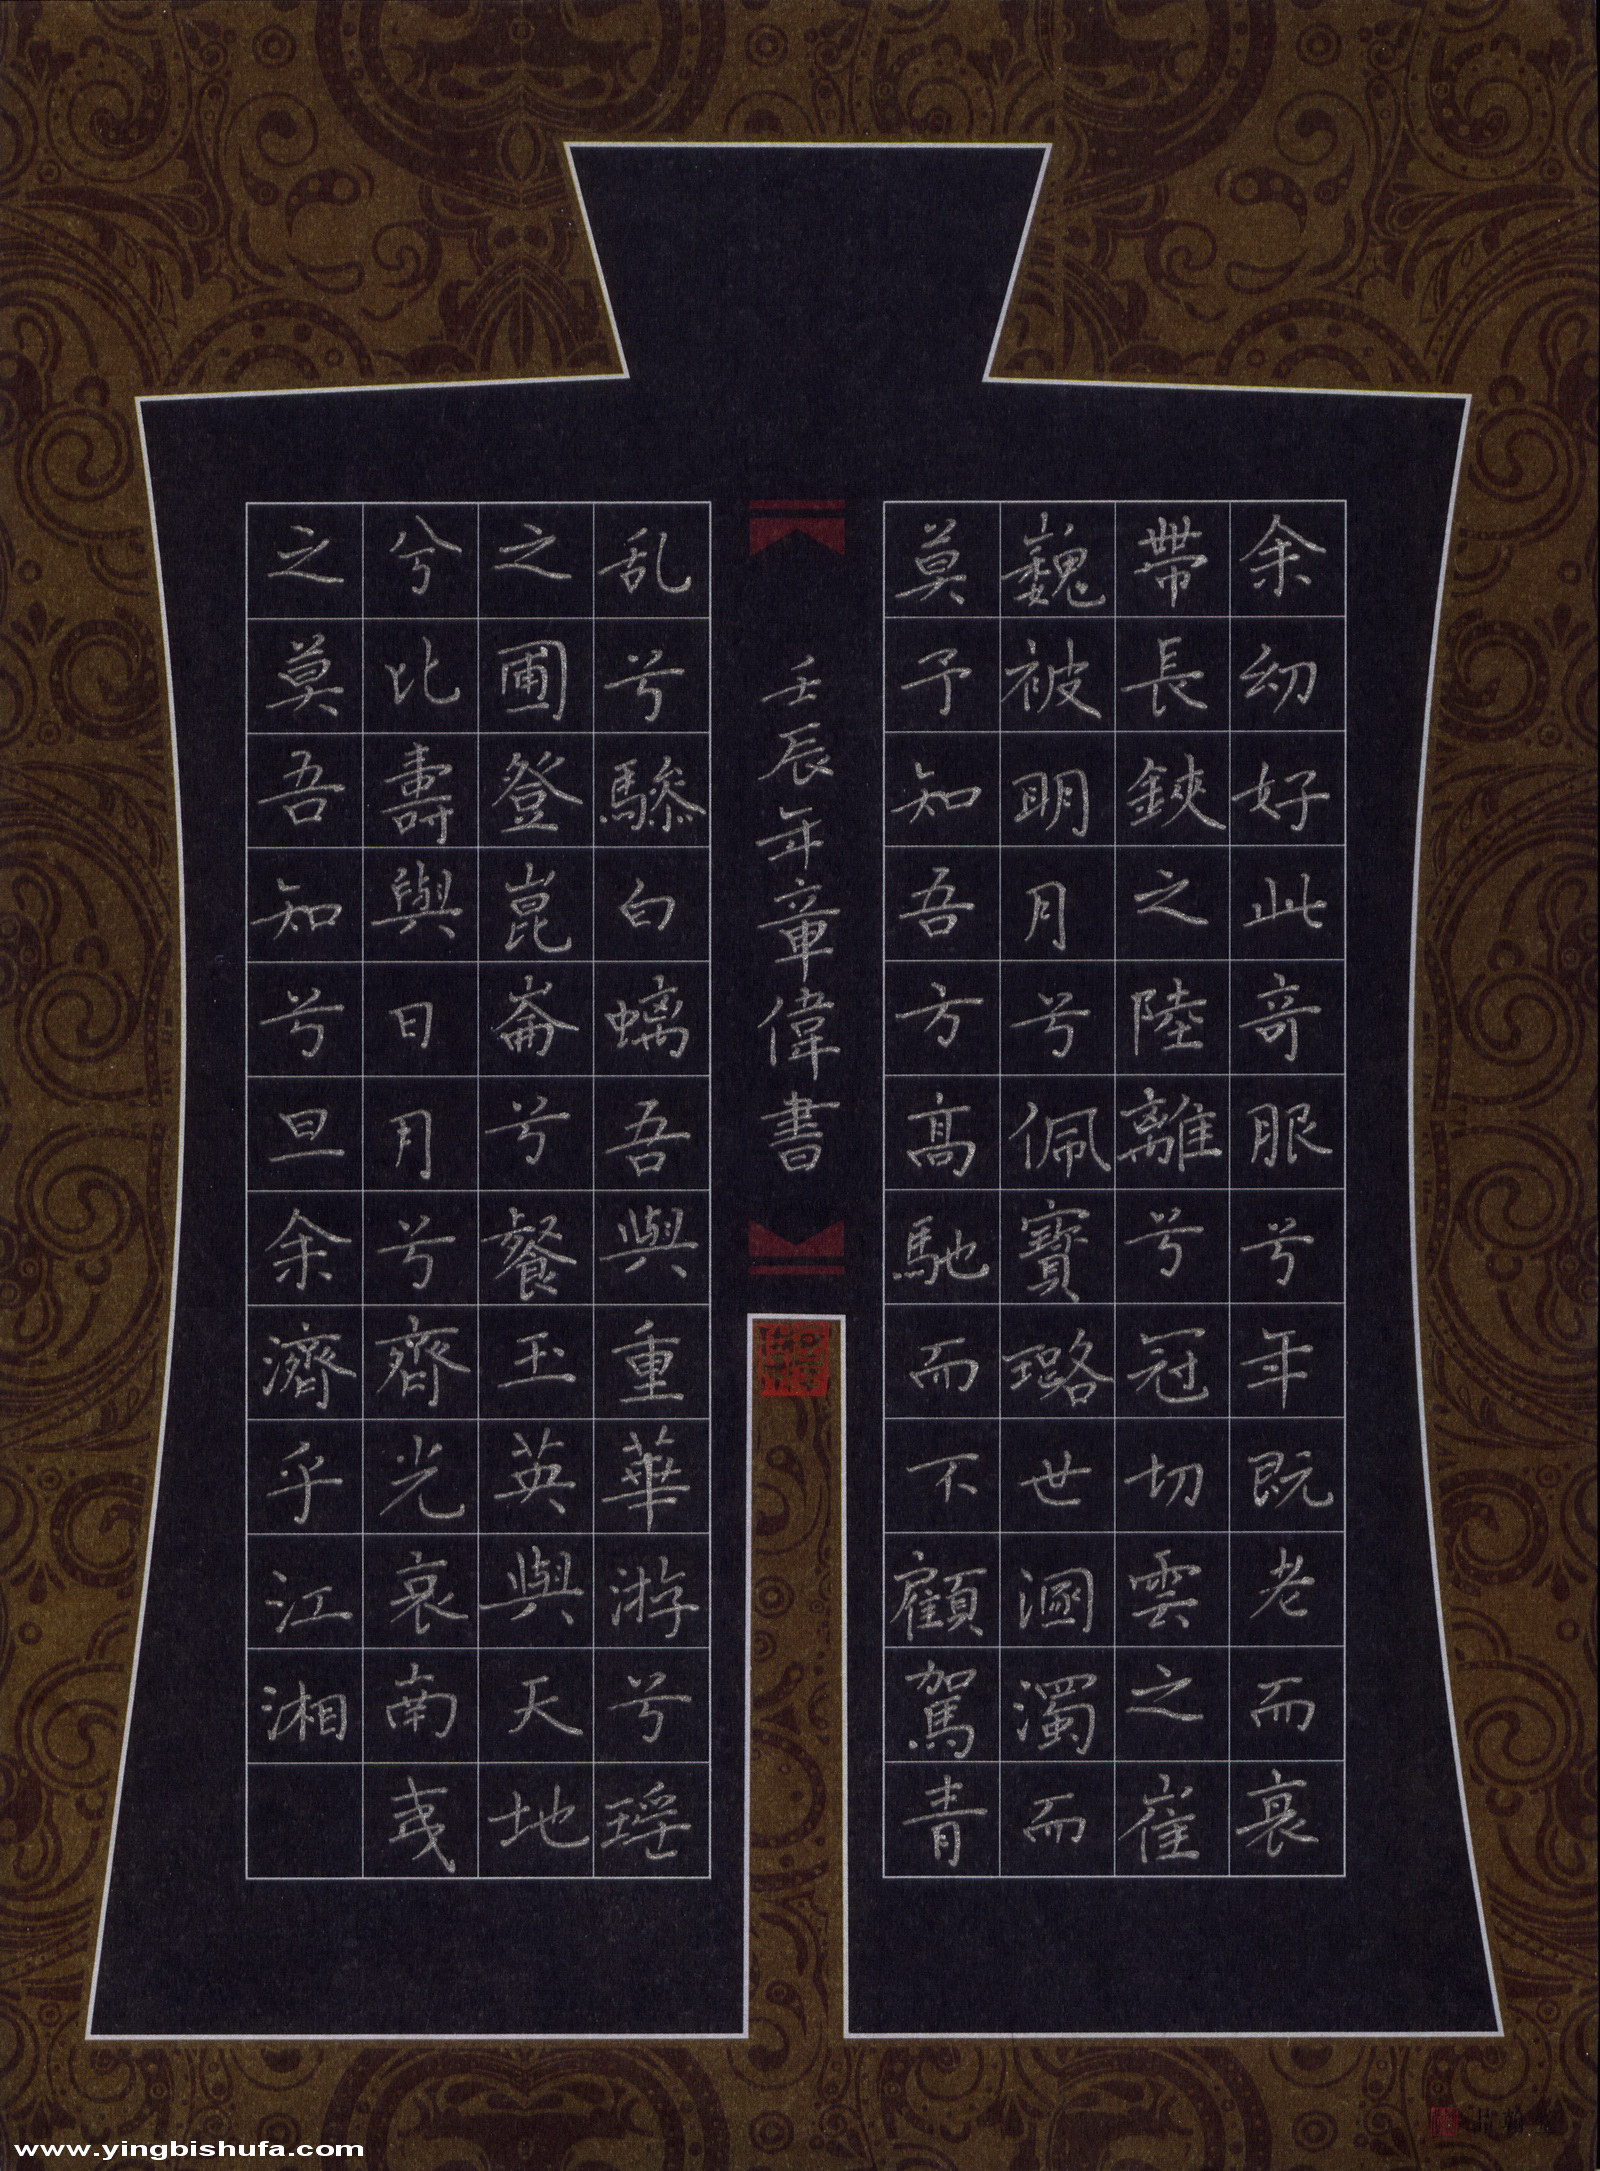 余幼好此奇服兮年既老而衰
帶長鋏之陸離兮冠切雲之崔
巍被明月兮佩寶璐世溷濁而
莫予知吾方髙馳而不顧駕青
壬辰年章偉書
乱兮驂白螭吾與重華游兮瑶
之圃登崑崙兮餐玉英與天地
兮比壽與日月兮齊光哀南夷
之莫吾知兮旦余濟乎江湘
www.yingbishufa.com